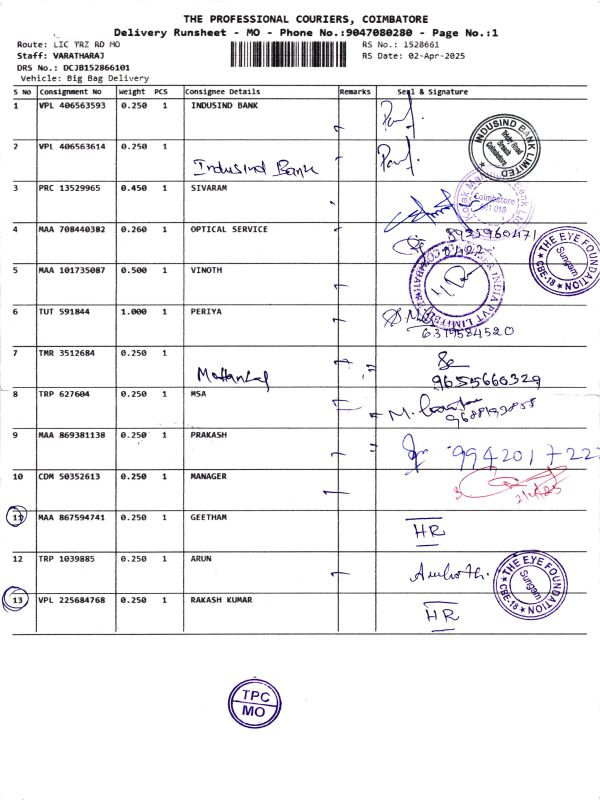 THE PROFESSIONAL COURIERS, COIMBATORE
Delivery Runsheet - MO - Phone No.:9047080280 - Page No.:1
Route: LIC YRZ RD MO
RS No.: 1528661
Staff: VARATHARAJ
RS Date: 02-Apr-2025
DRS No.: DCJB152866101
Vehicle: Big Bag Delivery
S No Consignment No Weight PCS Consignee Details Remarks Seal & Signature
1 VPL 406563593 0.250 1 INDUSIND BANK
INDUSIND BANK LIMITED
Trichy Road
Branch
Coimbatore
2 VPL 406563614 0.250 1
Indusind Bank
3 PRC 13529965 0.450 1 SIVARAM
Coimbatore
641 018
4 MAA 708440382 0.260 1 OPTICAL SERVICE
8935960471
THE EYE FOUNDATION
Sungam
CBE-18
5 MAA 101735087 0.500 1 VINOTH
INDIA PVT LIMITED
6 TUT 591844 1.000 1 PERIYA
6379584520
7 TMR 3512684 0.250 1
9655660329
8 TRP 627604 0.250 1 MSA
M.
9 MAA 869381138 0.250 1 PRAKASH
9942017222
10 CDM 50352613 0.250 1 MANAGER
2/4/25
11 MAA 867594741 0.250 1 GEETHAM
HR
12 TRP 1039885 0.250 1 ARUN
THE EYE FOUNDATION
Sungam
CBE-18
13 VPL 225684768 0.250 1 RAKASH KUMAR
HR
TPC
MO